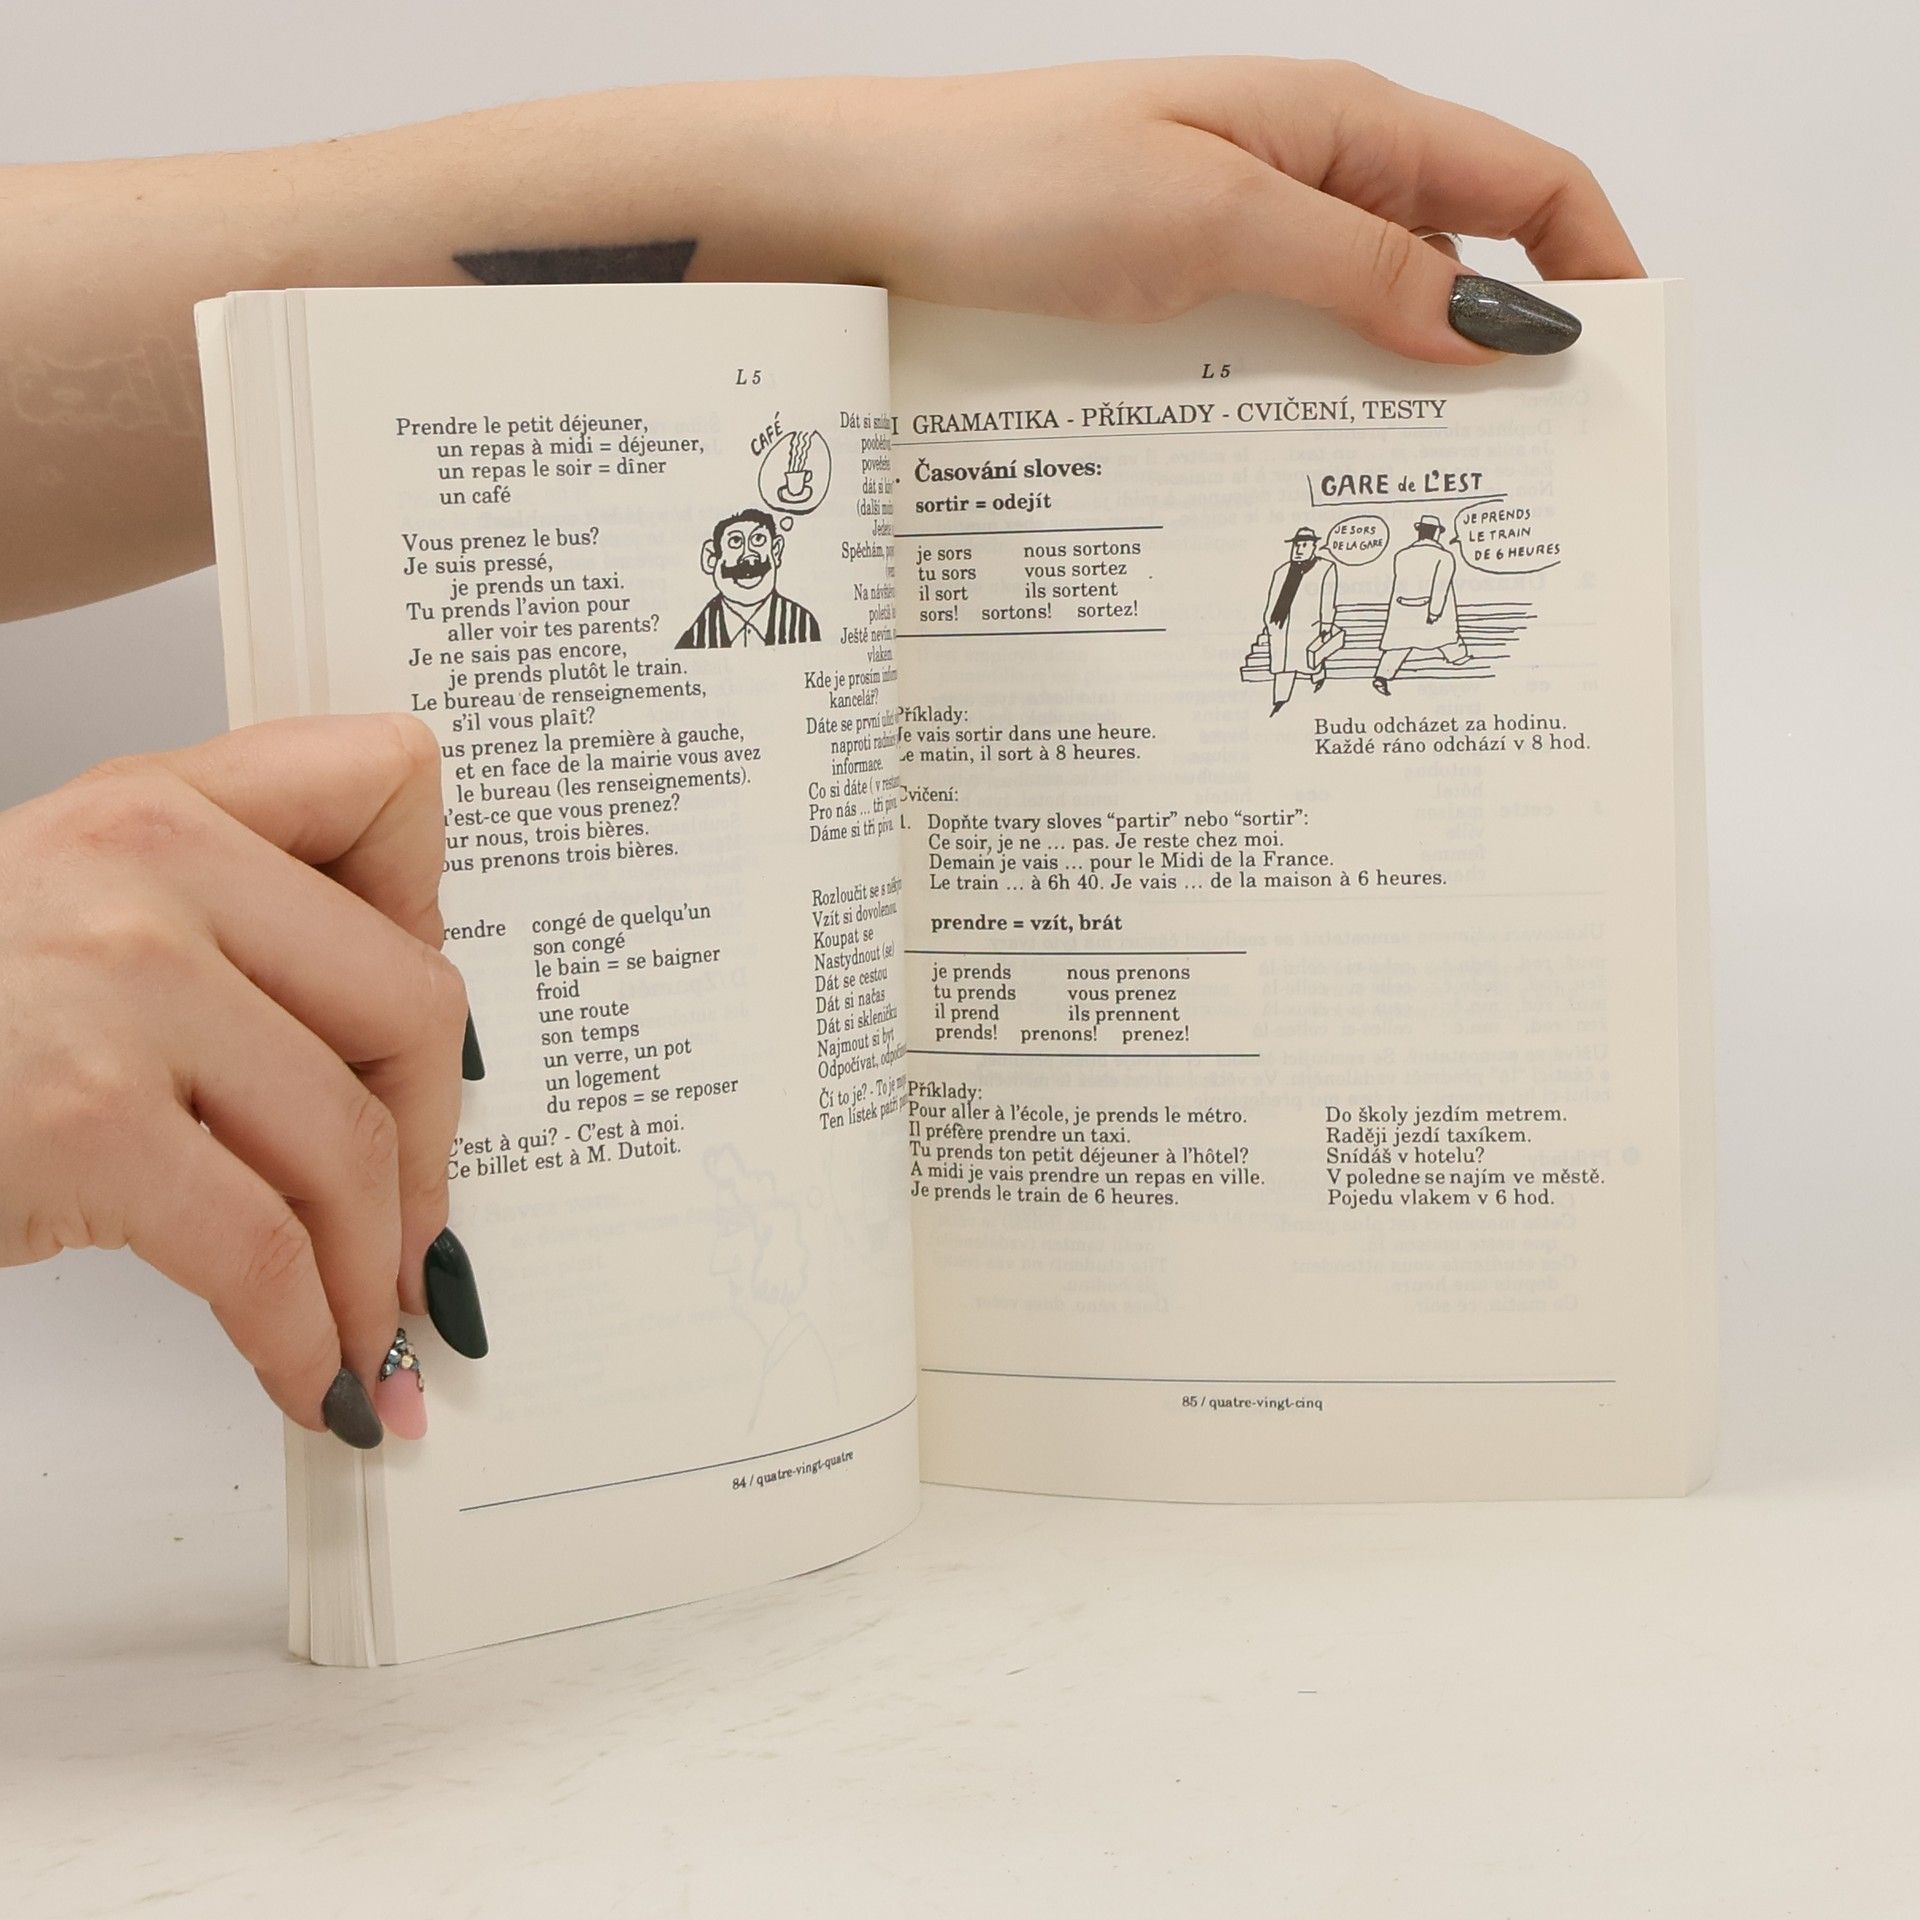 L 5
Prendre le petit déjeuner,
un repas à midi = déjeuner,
un repas le soir = dîner
un café
CAFÉ
Vous prenez le bus?
Je suis pressé,
je prends un taxi.
Tu prends l'avion pour
aller voir tes parents?
Je ne sais pas encore,
je prends plutôt le train.
Le bureau de renseignements,
s'il vous plaît?
prenez la première à gauche,
et en face de la mairie vous avez
le bureau (les renseignements).
que vous prenez?
nous, trois bières.
prenons trois bières.
congé de quelqu'un
son congé
le bain = se baigner
froid
une route
son temps
un verre, un pot
un logement
du repos = se reposer
C'est à qui? - C'est à moi.
Ce billet est à M. Dutoit.
Dát si
dát si
(další
Spěchám,
Na
Ještě nevím,
vlakem.
Kde je prosím
kancelář?
Dáte se první
naproti
informace.
Co si dáte ( v
Pro nás ... tři
Dáme si tři piva
Rozloučit se s
Vzít si dovolenou
Koupat se
Nastydnout (se)
Dát se cestou
Dát si načas
Dát si skleničku
Najmout si byt
Odpočívat,
Čí to je? - To je
Ten lístek patří
84 / quatre-vingt-quatre
L 5
I GRAMATIKA - PŘÍKLADY - CVIČENÍ, TESTY
Časování sloves:
sortir = odejít
je sors nous sortons
tu sors vous sortez
il sort ils sortent
sors! sortons! sortez!
GARE de L'EST
JE SORS
DE LA GARE
JE PRENDS
LE TRAIN
DE 6 HEURES
Příklady:
Je vais sortir dans une heure. Budu odcházet za hodinu.
Le matin, il sort à 8 heures. Každé ráno odchází v 8 hod.
Cvičení:
1. Dopňte tvary sloves “partir” nebo “sortir”:
Ce soir, je ne ... pas. Je reste chez moi.
Demain je vais ... pour le Midi de la France.
Le train ... à 6h 40. Je vais ... de la maison à 6 heures.
prendre = vzít, brát
je prends nous prenons
tu prends vous prenez
il prend ils prennent
prends! prenons! prenez!
Příklady:
Pour aller à l'école, je prends le métro. Do školy jezdím metrem.
Il préfère prendre un taxi. Raději jezdí taxíkem.
Tu prends ton petit déjeuner à l'hôtel? Snídáš v hotelu?
A midi je vais prendre un repas en ville. V poledne se najím ve městě.
Je prends le train de 6 heures. Pojedu vlakem v 6 hod.
85 / quatre-vingt-cinq